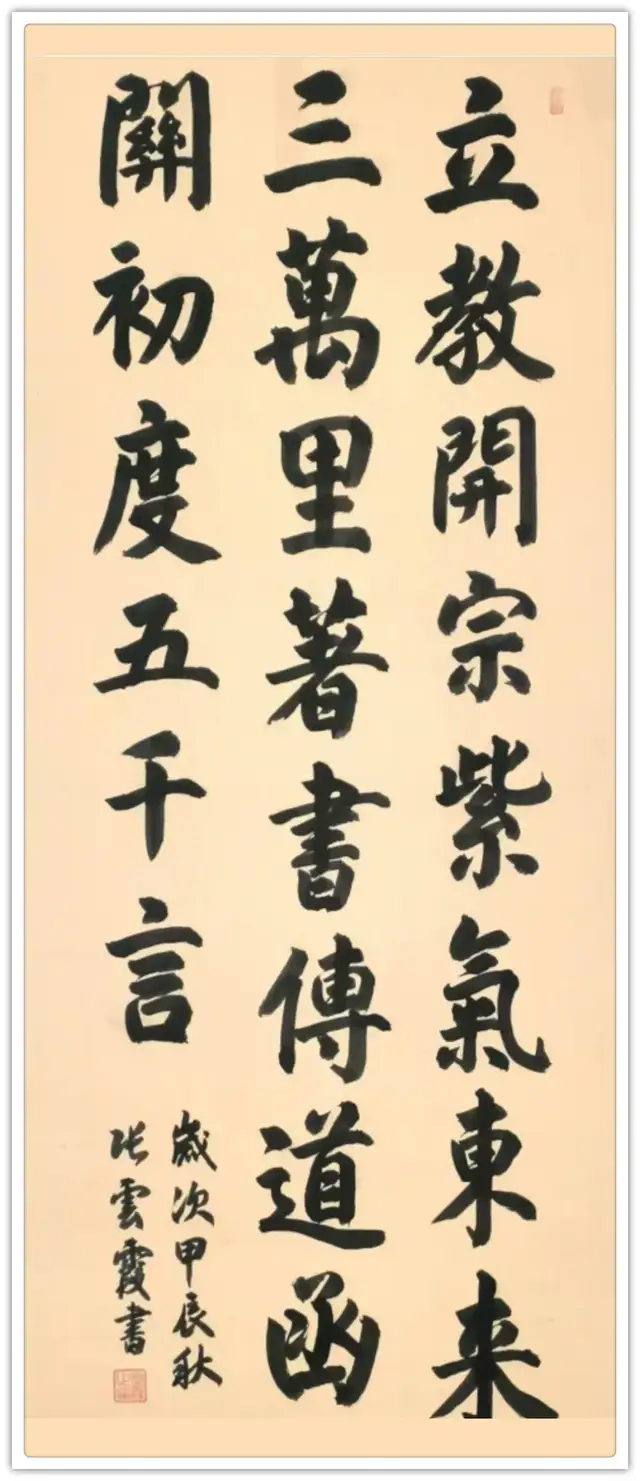 立教開宗紫氣東来
三萬里著書傳道函
關初度五千言
歲次甲辰秋
張雲霞書